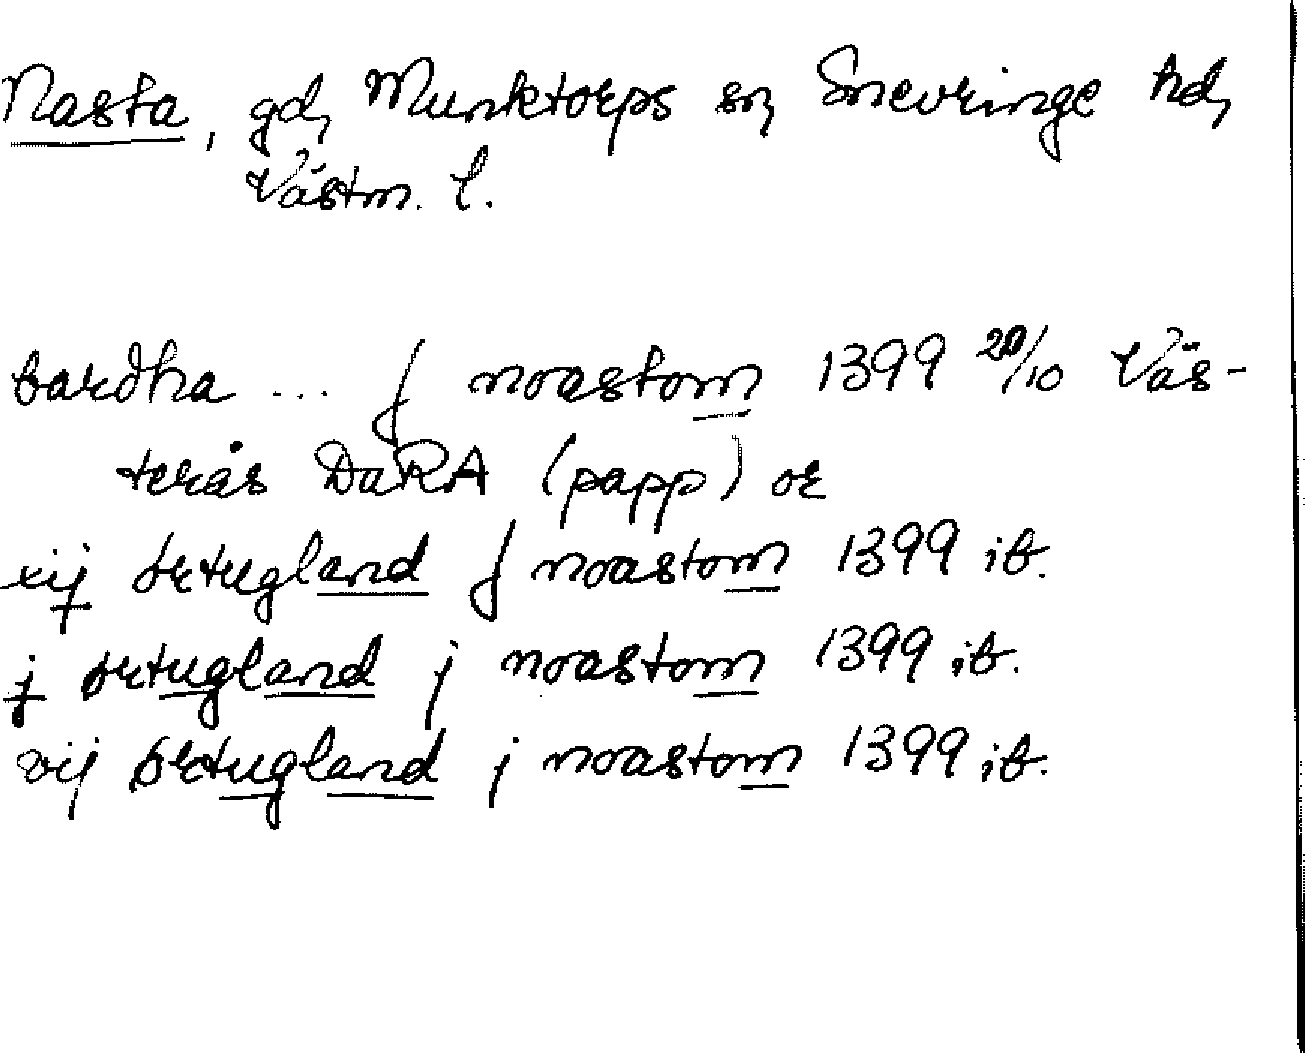 Nasta, gd, Munktorps sn, Snevringe hd,
Västm. l.
bardha ... j noastom 1399 20/10 Väs-
terås DaRA (papp) or
xij ørtugland j noastom 1399 ib.
j ørtugland j noastom 1399 ib.
vij ørtugland j noastom 1399 ib.